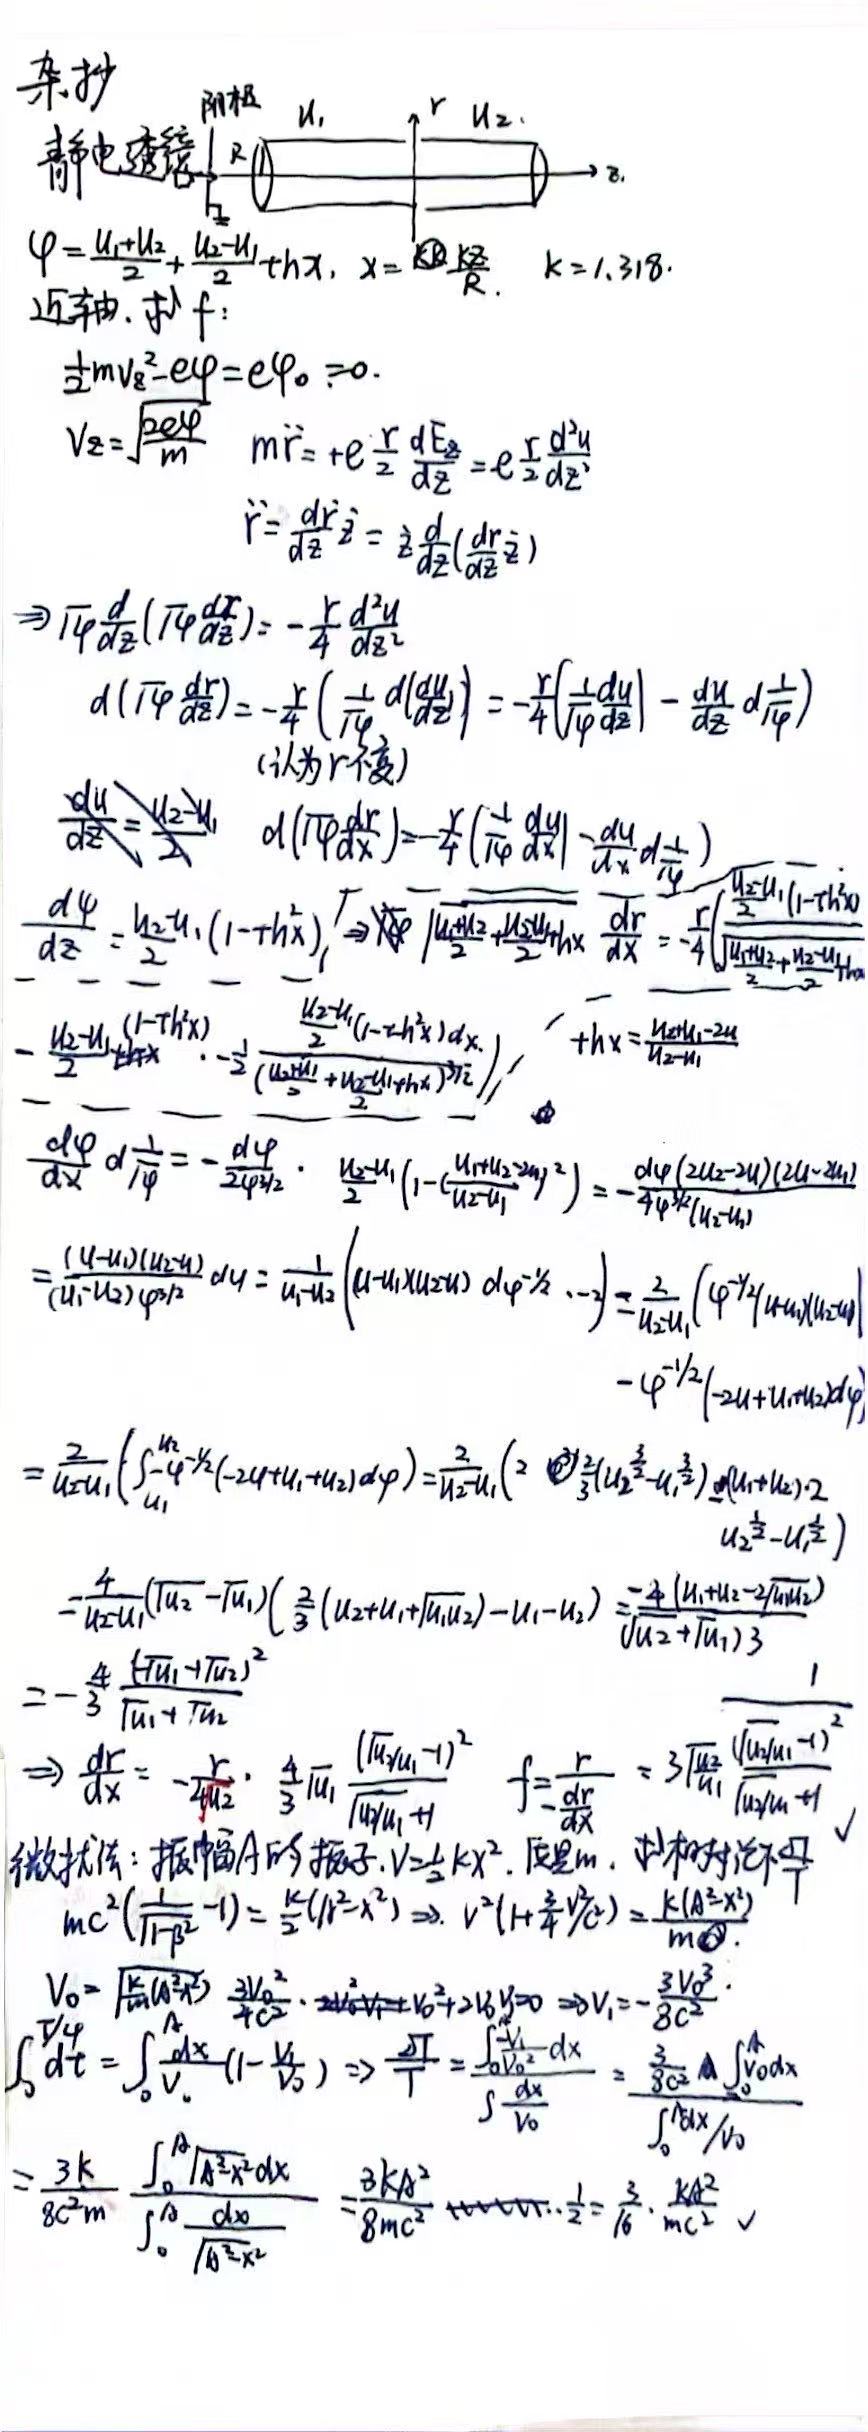 杂抄
阴极 U₁ r U₂.
静电透镜 R z.
φ = (U₁+U₂)/2 + (U₂-U₁)/2 thx, x = kz/R. k = 1.318.
近轴. 求 f:
½mv_z² - eφ = eφ₀ = 0.
v_z = √(2eφ/m) m r̈ = +e r/2 dE_z/dz = -e r/2 d²u/dz²
r̈ = dṙ/dz ż = ż d/dz(dr/dz ż)
⇒ √φ d/dz(√φ dr/dz) = -r/4 d²u/dz²
d(√φ dr/dz) = -r/4(1/√φ d(du/dz)) = -r/4(1/√φ du/dz| - du/dz d 1/√φ)
(认为r不变)
du/dz = (U₂-U₁)/2 d(√φ dr/dx) = -r/4(1/√φ du/dx| - du/dx d 1/√φ)
dφ/dz = (U₂-U₁)/2 (1-th²x), ⇒ √((U₁+U₂)/2 + (U₂-U₁)/2 thx) dr/dx = -r/4( (U₂-U₁)/2 (1-th²x) / √((U₁+U₂)/2 + (U₂-U₁)/2 thx)
- (U₂-U₁)/2 (1-th²x) · -½ (U₂-U₁)/2 (1-th²x)dx / ((U₂+U₁)/2 + (U₂-U₁)/2 thx)^{3/2} ) thx = (U₂+U₁-2u)/(U₂-U₁)
dφ/dx d 1/√φ = -dφ/(2φ^{3/2}) · (U₂-U₁)/2 (1-((U₁+U₂-2u)/(U₂-U₁))²) = -dφ(2U₂-2u)(2u-2U₁)/(4φ^{3/2}(U₂-U₁))
= (u-U₁)(U₂-u)/((U₁-U₂)φ^{3/2}) dφ = 1/(U₁-U₂) ((u-U₁)(U₂-u) dφ^{-1/2} ·-2) = 2/(U₂-U₁) (φ^{-1/2}(u-U₁)(U₂-u)|
- φ^{-1/2}(-2u+U₁+U₂)dφ)
= 2/(U₂-U₁) (∫_{U₁}^{U₂} -φ^{-1/2}(-2φ+U₁+U₂)dφ) = 2/(U₂-U₁) (2 · 2/3(U₂^{3/2}-U₁^{3/2}) - (U₁+U₂)·2
U₂^{1/2}-U₁^{1/2})
= 4/(U₂-U₁) (√U₂-√U₁)(2/3(U₂+U₁+√(U₁U₂))-U₁-U₂) = -4(U₁+U₂-2√(U₁U₂))/((√U₂+√U₁)3)
= -4/3 (-√U₁+√U₂)²/(√U₁+√U₂)
⇒ dr/dx = -r/(4√U₂) · 4/3 √U₁ (√(U₂/U₁)-1)²/(√(U₂/U₁)+1) f = r/(-dr/dx) = 3√(U₂/U₁) 1/((√(U₂/U₁)-1)²/(√(U₂/U₁)+1)) ✓
微扰法: 振幅A的振子. V=½kx². 质量m. 求相对论下 ΔT/T
mc²(1/√(1-β²) -1) = k/2(A²-x²) ⇒ v²(1+¾v²/c²) = k(A²-x²)/m.
V₀ = √(k/m(A²-x²)) 3V₀²/4c² · V₀²+2V₀V₁=0 ⇒ V₁ = -3V₀³/8c².
∫₀^{T/4} dt = ∫₀^A dx/V₀ (1-V₁/V₀) ⇒ ΔT/T = ∫₀^A -V₁/V₀² dx / ∫ dx/V₀ = 3/8c² ∫₀^A V₀dx / ∫₀^A dx/V₀
= 3k/8c²m ∫₀^A √(A²-x²)dx / ∫₀^A dx/√(A²-x²) = 3kA²/8mc² · ½ = 3/16 · kA²/mc² ✓